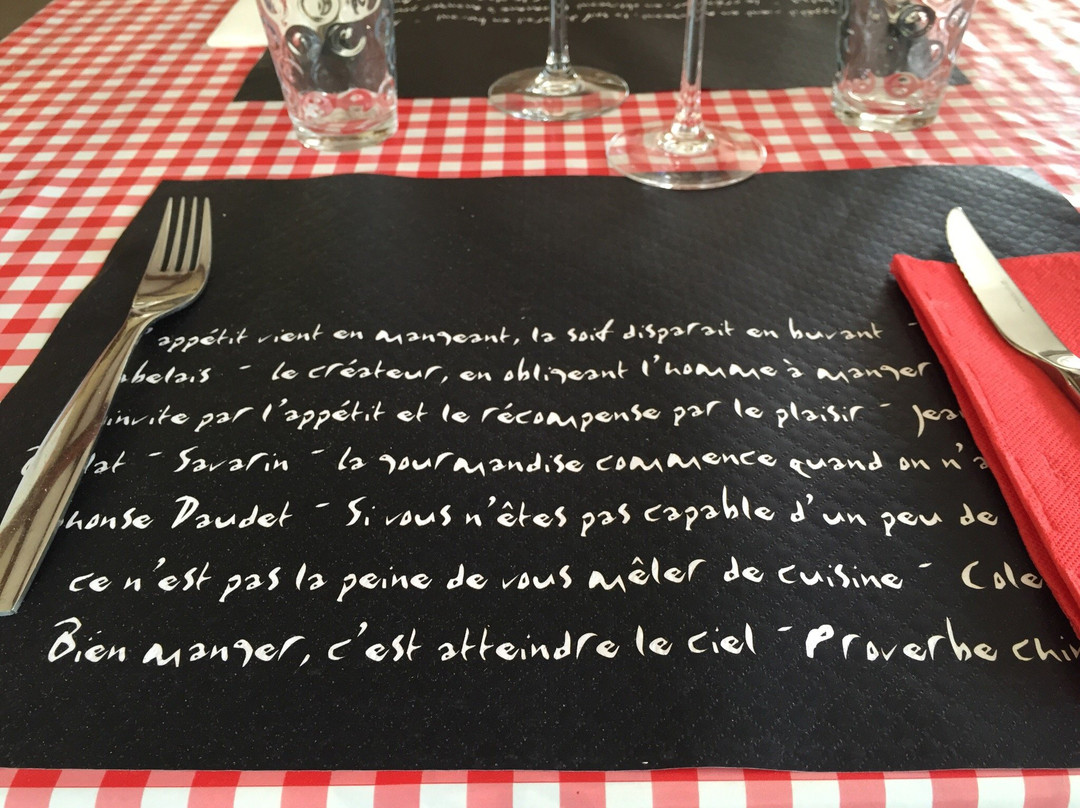 appétit vient en mangeant, la soif disparait en buvant -
abelais - le créateur, en obligeant l'homme à manger
invite par l'appétit et le récompense par le plaisir - Jea
lat - Savarin - la gourmandise commence quand on n'a
phonse Daudet - Si vous n'êtes pas capable d'un peu de
ce n'est pas la peine de vous mêler de cuisine - Cole
Bien manger, c'est atteindre le ciel - Proverbe chin